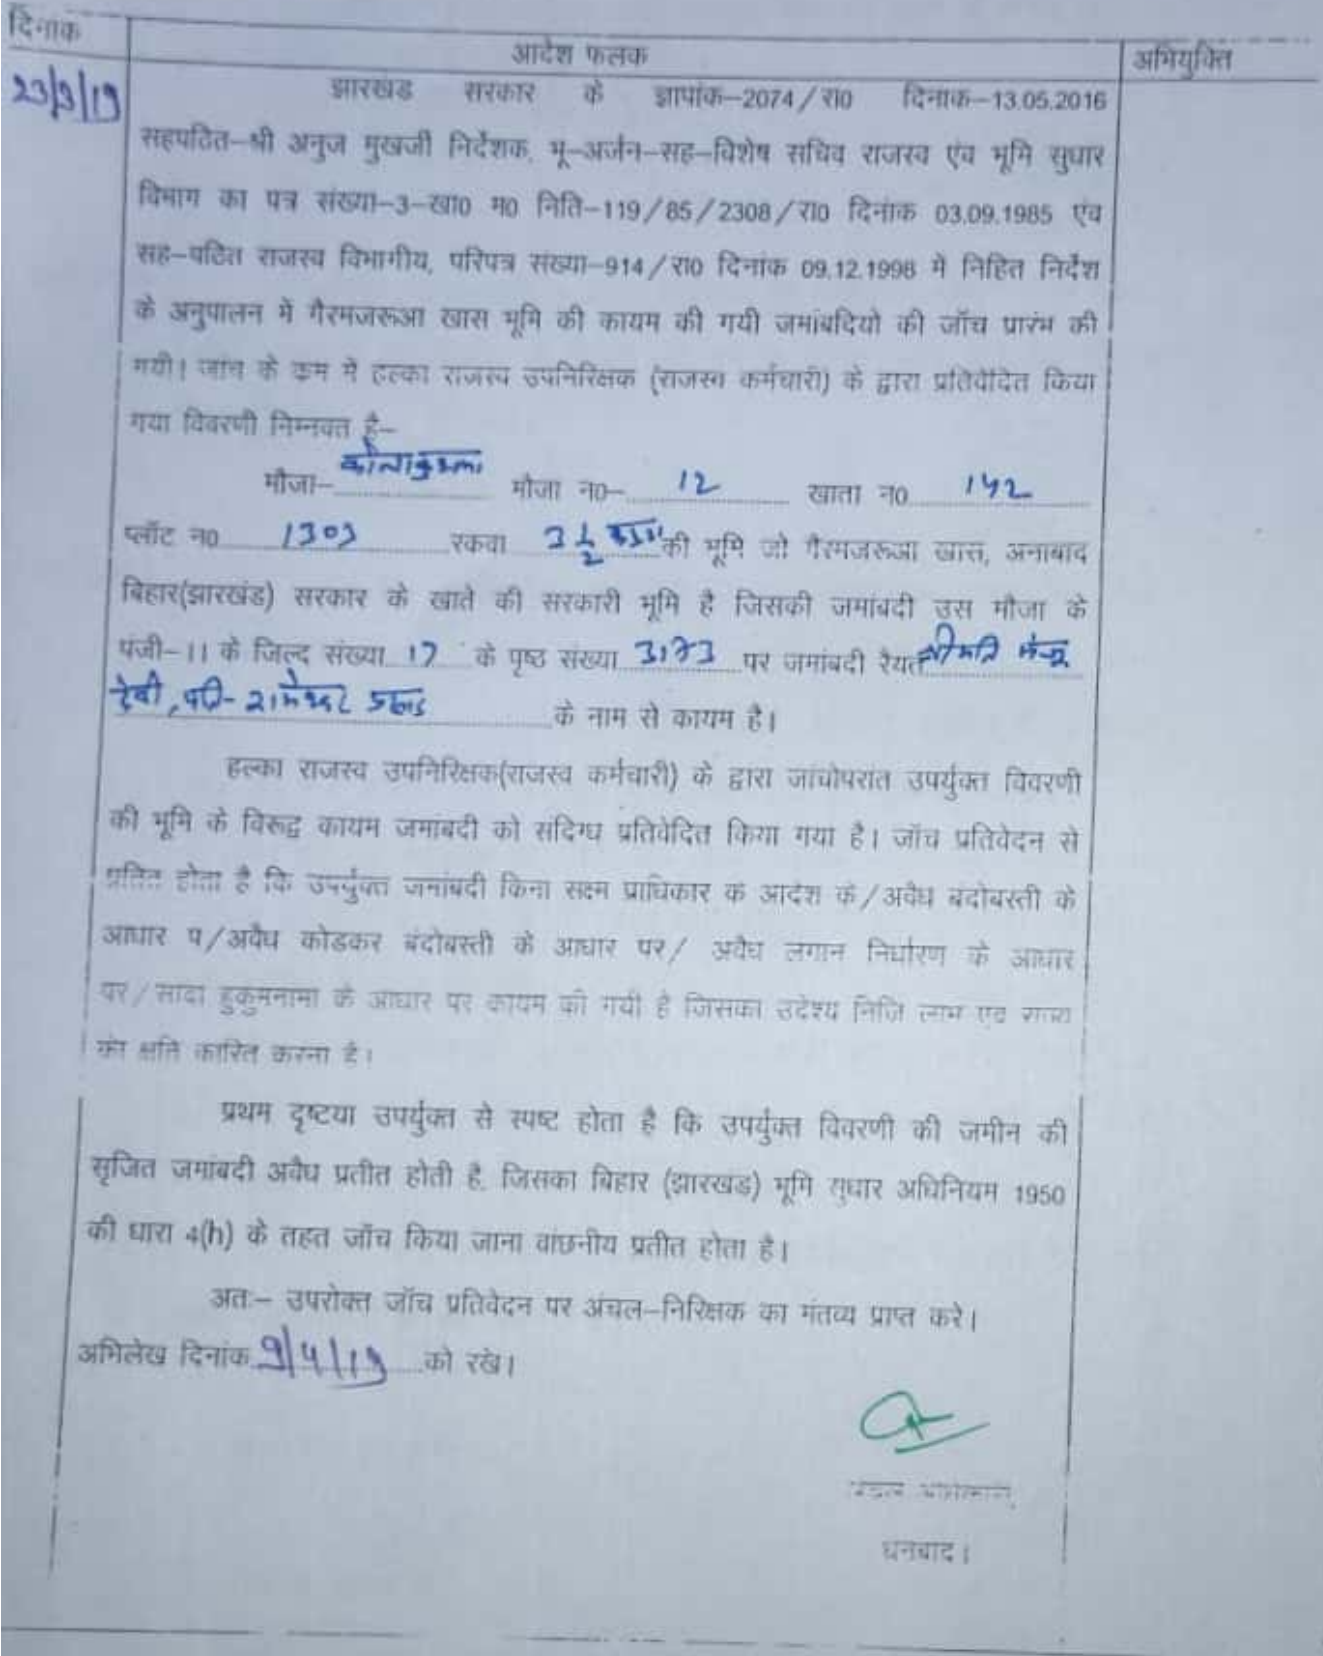 दिनांक
आदेश फलक
अभियुक्ति
23/3/19
झारखंड सरकार के ज्ञापांक–2074/रा0 दिनांक–13.05.2016
सहपठित–श्री अनुज मुखर्जी निर्देशक, भू–अर्जन–सह–विशेष सचिव राजस्व एंव भूमि सुधार
विभाग का पत्र संख्या–3–खा0 म0 निति–119/85/2308/रा0 दिनांक 03.09.1985 एंव
सह–पठित राजस्व विभागीय, परिपत्र संख्या–914/रा0 दिनांक 09.12.1998 में निहित निर्देश
के अनुपालन में गैरमजरूआ खास भूमि की कायम की गयी जमांबदियो की जॉच प्रारंभ की
गयी। जांच के क्रम में हल्का राजस्व उपनिरिक्षक (राजस्व कर्मचारी) के द्वारा प्रतिवेदित किया
गया विवरणी निम्नवत है–
मौजा– कोलाकुसमा मौजा न0– 12 खाता न0 142
प्लॉट न0 1303 रकवा 3 1/2 की भूमि जो गैरमजरूआ खास, अनाबाद
बिहार(झारखंड) सरकार के खाते की सरकारी भूमि है जिसकी जमांबदी उस मौजा के
पंजी–11 के जिल्द संख्या 17 के पृष्ठ संख्या 3173 पर जमांबदी रैयत श्रीमति मंजू
देवी, पति– रामेश्वर प्रसाद के नाम से कायम है।
हल्का राजस्व उपनिरिक्षक(राजस्व कर्मचारी) के द्वारा जांचोपरांत उपर्युक्त विवरणी
की भूमि के विरूद्व कायम जमांबदी को संदिग्ध प्रतिवेदित किया गया है। जॉच प्रतिवेदन से
प्रतित होता है कि उपर्युक्त जमांबदी बिना सक्षम प्राधिकार के आदेश के/अवैध बंदोबस्ती के
आधार प/अवैध कोडकर बंदोबस्ती के आधार पर/ अवैध लगान निर्धारण के आधार
पर/सादा हुकुमनामा के आधार पर कायम की गयी है जिसका उदेश्य निजि लाभ एवं राज्य
को क्षति कारित करना है।
प्रथम दृष्टया उपर्युक्त से स्पष्ट होता है कि उपर्युक्त विवरणी की जमीन की
सृजित जमांबदी अवैध प्रतीत होती है, जिसका बिहार (झारखंड) भूमि सुधार अधिनियम 1950
की धारा 4(h) के तहत जॉच किया जाना वांछनीय प्रतीत होता है।
अतः– उपरोक्त जॉच प्रतिवेदन पर अंचल–निरिक्षक का मंतव्य प्राप्त करे।
अभिलेख दिनांक 9/4/19 को रखे।
अंचल अधिकारी,
धनबाद।